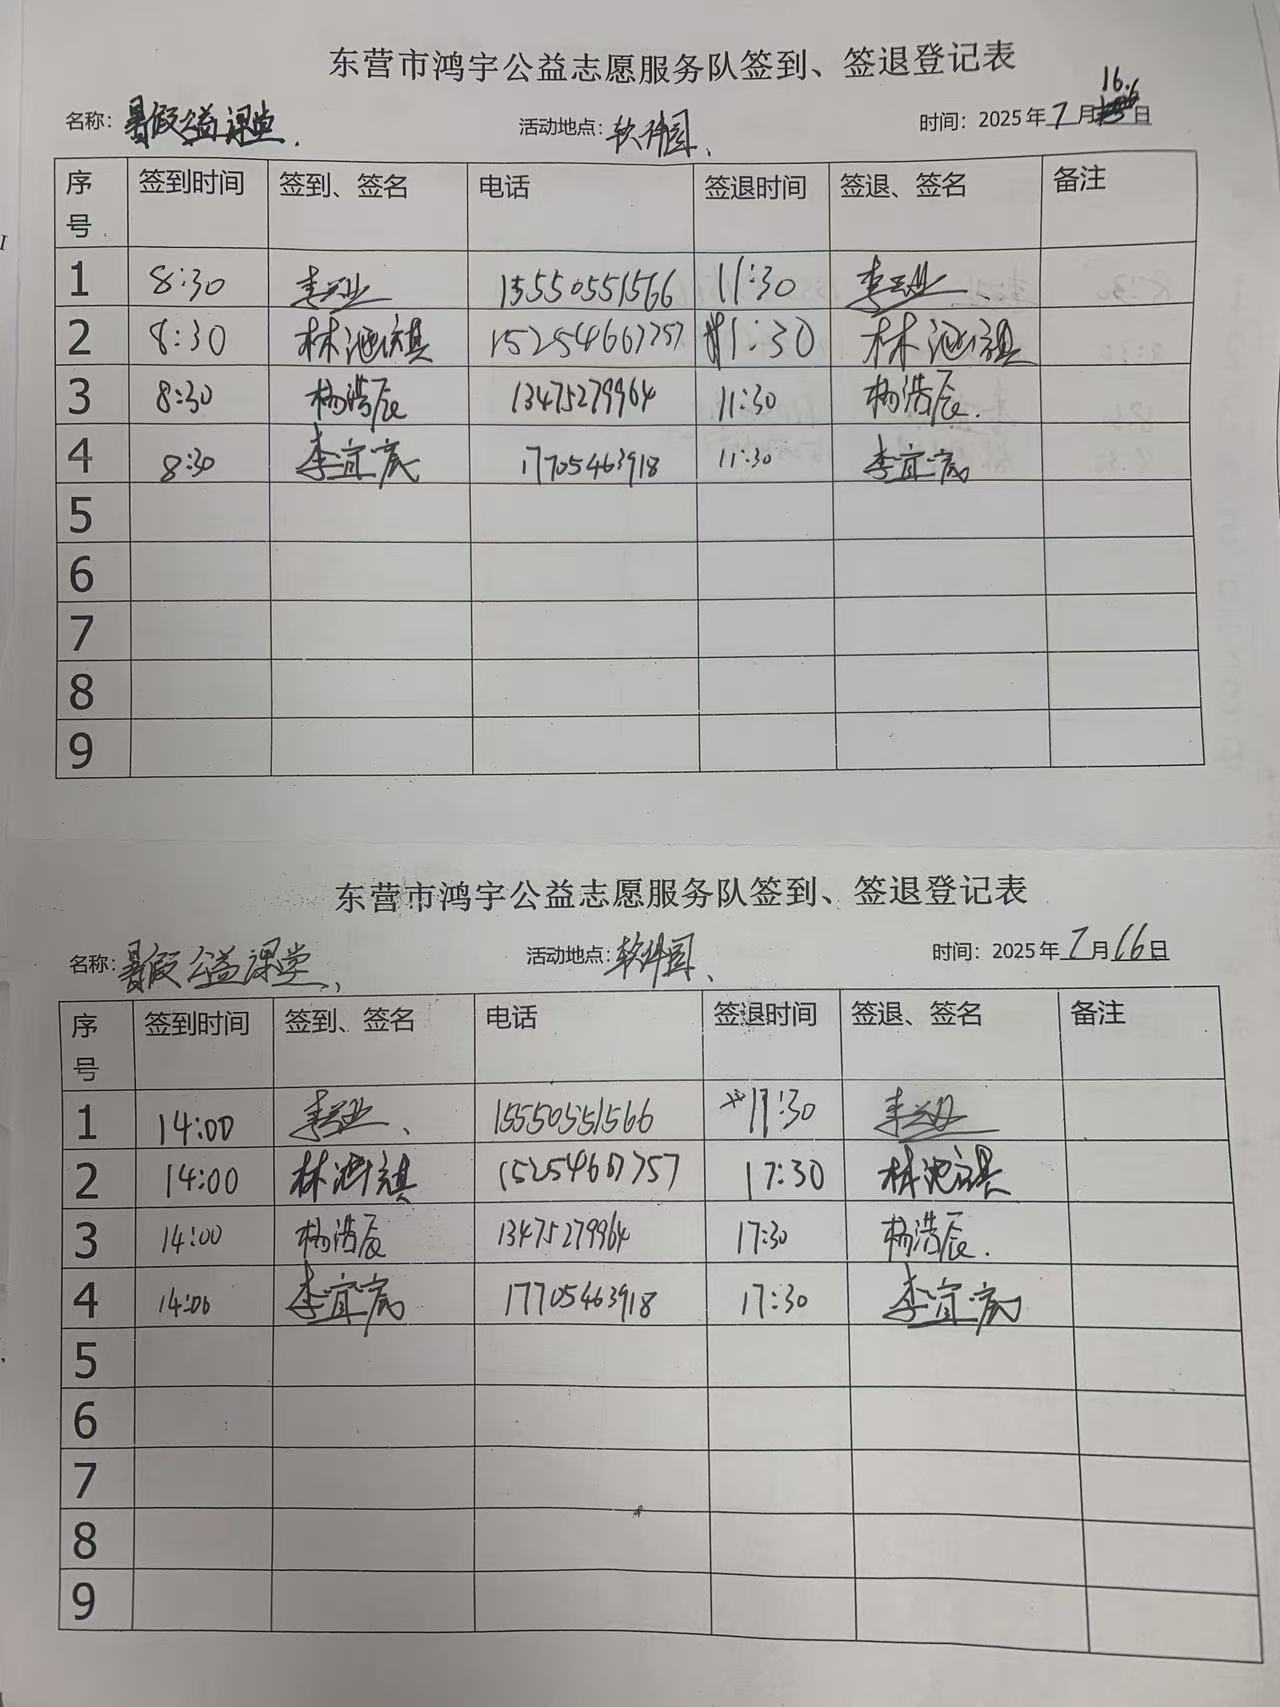 东营市鸿宇公益志愿服务队签到、签退登记表
名称：暑假公益课堂. 活动地点：软件园、 时间：2025年7月16.日
序号 签到时间 签到、签名 电话 签退时间 签退、签名 备注
1 8:30 15550551566 11:30
2 8:30 林池祺 15254667757 11:30 林池祺
3 8:30 杨浩辰 13475279964 11:30 杨浩辰.
4 8:30 李宜宸 17705463918 11:30 李宜宸
5
6
7
8
9
东营市鸿宇公益志愿服务队签到、签退登记表
名称：暑假公益课堂、 活动地点：软件园、 时间：2025年7月16日
序号 签到时间 签到、签名 电话 签退时间 签退、签名 备注
1 14:00 15550551566 17:30
2 14:00 15254667757 17:30
3 14:00 杨浩辰 13475279964 17:30 杨浩辰.
4 14:00 李宜宸 17705463918 17:30 李宜宸
5
6
7
8
9